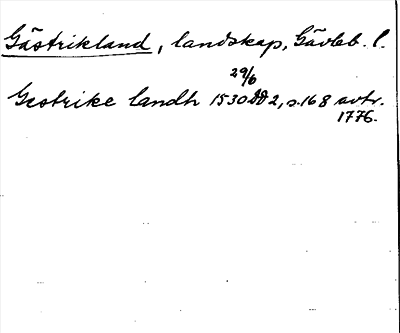 Gästrikland, landskap, Gävleb. l.
29/6
Gestrike landh 1530 DD 2, s. 168 avtr.
1776.